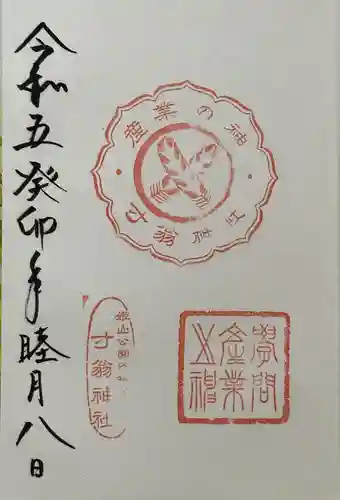 令和五癸卯年睦月八日
産業の神
寸翁神社
銀山公園
寸翁神社
学問
産業
神